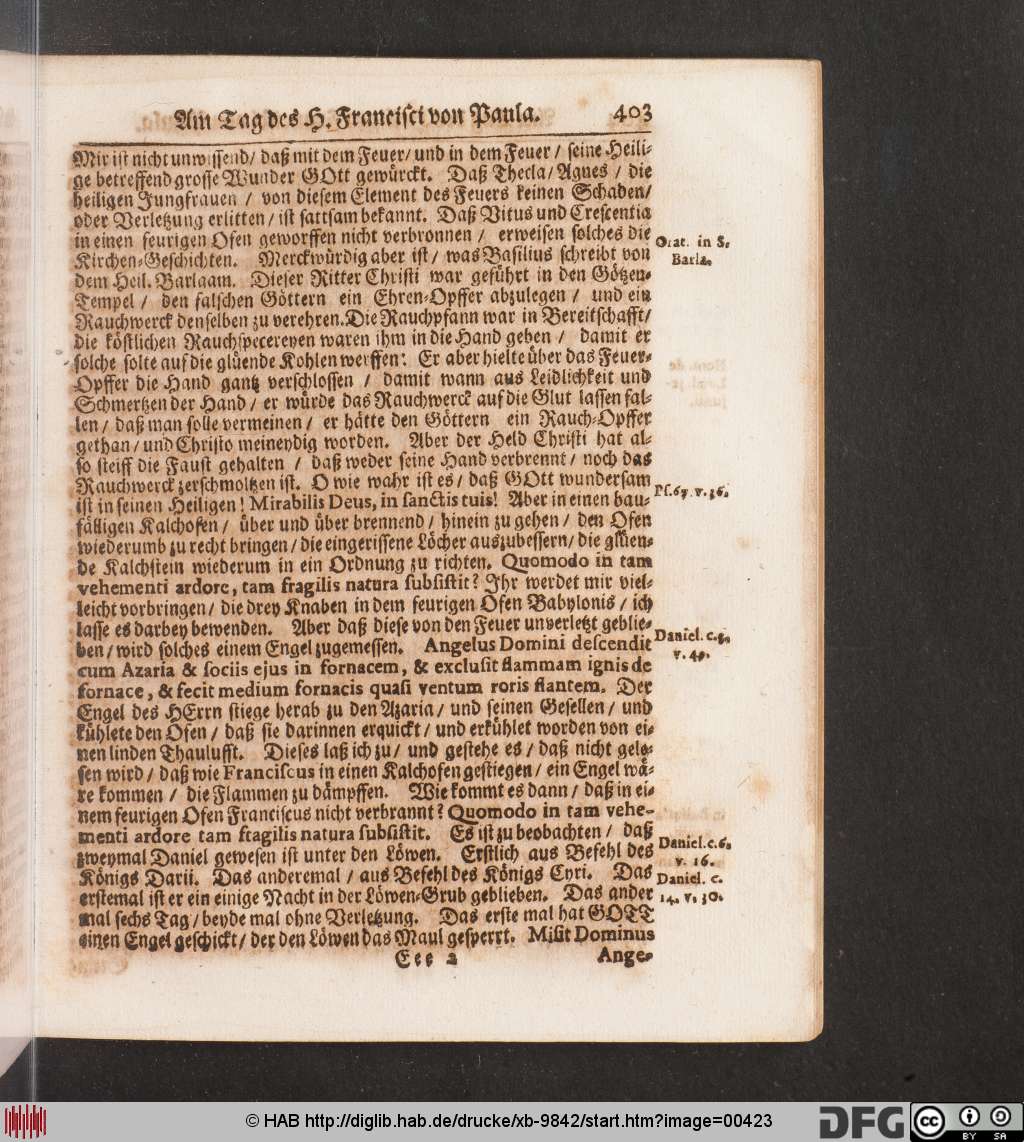 Am Tag des H. Francisci von Paula. 403
Mir ist nicht unwissend/ daß mit dem Feuer/ und in dem Feuer / seine Heili-
ge betreffend grosse Wunder GOtt gewürckt. Daß Thecla/ Agnes / die
heiligen Jungfrauen / von diesem Element des Feuers keinen Schaden/
oder Verletzung erlitten / ist sattsam bekannt. Daß Vitus und Crescentia
in einen feurigen Ofen geworffen nicht verbronnen / erweisen solches die
Kirchen-Geschichten. Merckwürdig aber ist / was Basilius schreibt von
Orat. in S.
Barla.
dem Heil. Barlaam. Dieser Ritter Christi war geführt in den Götzen-
Tempel / den falschen Göttern ein Ehren-Opffer abzulegen / und ein
Rauchwerck denselben zu verehren. Die Rauchpfann war in Bereitschafft/
die köstlichen Rauchspecereyen waren ihm in die Hand geben / damit er
solche solte auf die glüende Kohlen werffen: Er aber hielte über das Feuer-
Opffer die Hand gantz verschlossen / damit wann aus Leidlichkeit und
Schmertzen der Hand / er würde das Rauchwerck auf die Glut lassen fal-
len / daß man solle vermeinen / er hätte den Göttern ein Rauch-Opffer
gethan / und Christo meineydig worden. Aber der Held Christi hat al-
so steiff die Faust gehalten / daß weder seine Hand verbrennt / noch das
Rauchwerck zerschmoltzen ist. O wie wahr ist es / daß GOtt wundersam
ist in seinen Heiligen! Mirabilis Deus, in sanctis suis! Aber in einen bau-
Ps. 67. v. 36.
fälligen Kalchofen / über und über brennend / hinein zu gehen / den Ofen
wiederumb zu recht bringen / die eingerissene Löcher auszubessern / die glüen-
de Kalchstein wiederum in ein Ordnung zu richten. Quomodo in tam
vehementi ardore, tam fragilis natura subsistit? Ihr werdet mir viel-
leicht vorbringen / die drey Knaben in dem feurigen Ofen Babylonis / ich
lasse es darbey bewenden. Aber daß diese von den Feuer unverletzt geblie-
ben / wird solches einem Engel zugemessen. Angelus Domini descendit
Daniel. c. 3.
v. 49.
cum Azaria & sociis ejus in fornacem, & exclusit flammam ignis de
fornace, & fecit medium fornacis quasi ventum roris flantem. Der
Engel des HErrn stiege herab zu den Azaria / und seinen Gesellen / und
kühlete den Ofen / daß sie darinnen erquickt / und erkühlet worden von ei-
nen linden Thaulufft. Dieses laß ich zu / und gestehe es / daß nicht gele-
sen wird / daß wie Franciscus in einen Kalchofen gestiegen / ein Engel wä-
re kommen / die Flammen zu dämpffen. Wie kommt es dann / daß in ei-
nem feurigen Ofen Franciscus nicht verbrannt? Quomodo in tam vehe-
menti ardore tam fragilis natura subsistit. Es ist zu beobachten / daß
zweymal Daniel gewesen ist unter den Löwen. Erstlich aus Befehl des
Daniel. c. 6.
v. 16.
Königs Darii. Das anderemal / aus Befehl des Königs Cyri. Das
erstemal ist er ein einige Nacht in der Löwen-Grub geblieben. Das ander
Daniel. c.
14. v. 30.
mal sechs Tag / beyde mal ohne Verletzung. Das erste mal hat GOTT
einen Engel geschickt / der den Löwen das Maul gesperrt. Misit Dominus
Eee 2 Ange-
© HAB http://diglib.hab.de/drucke/xb-9842/start.htm?image=00423
DFG
cc BY SA